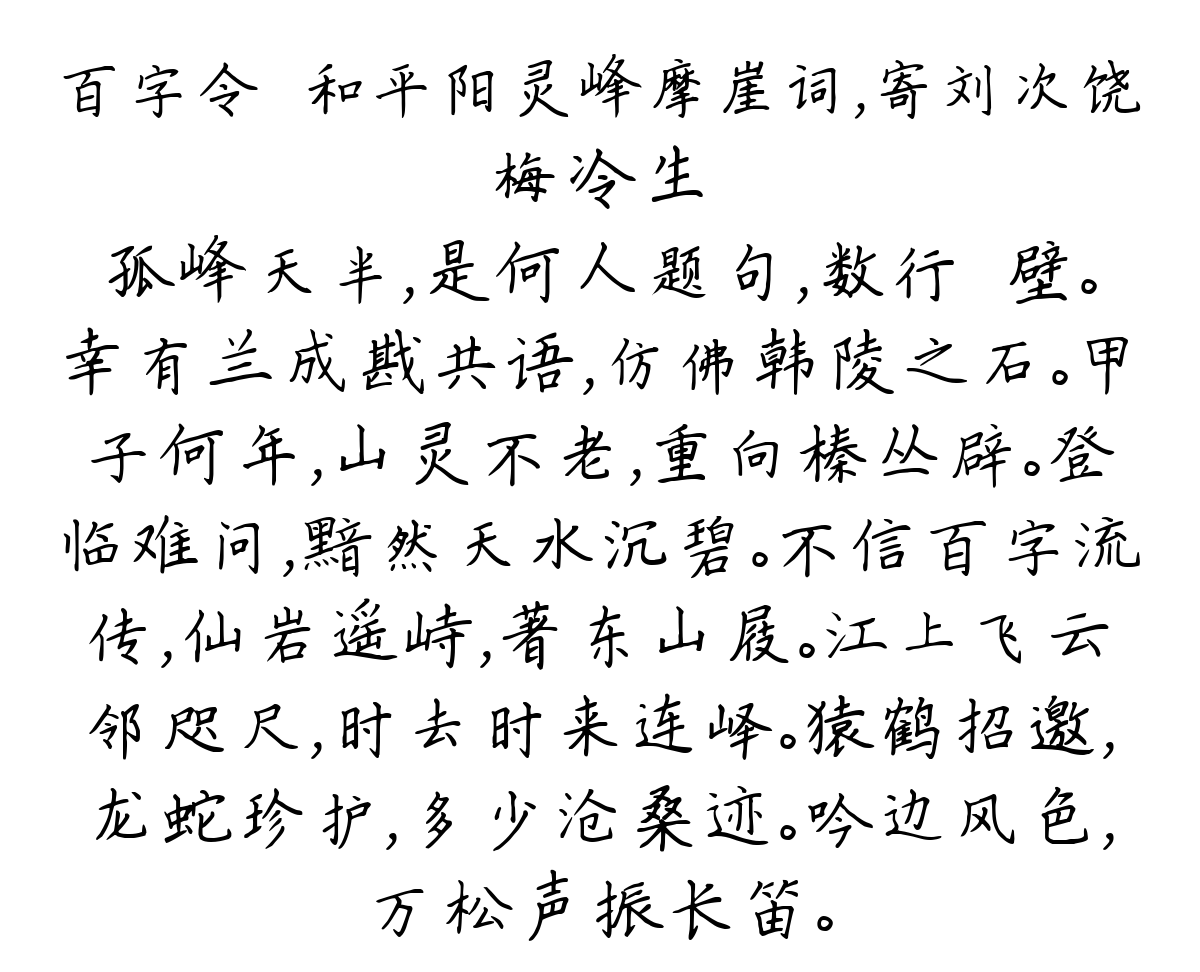 百字令 和平阳灵峰摩崖词,寄刘次饶
梅冷生
孤峰天半,是何人题句,数行 壁。
幸有兰成戡共语,仿佛韩陵之石。甲
子何年,山灵不老,重向榛丛辟。登
临难问,黯然天水沉碧。不信百字流
传,仙岩遥峙,著东山屐。江上飞云
邻咫尺,时去时来连峄。猿鹤招邀,
龙蛇珍护,多少沧桑迹。吟边风色,
万松声振长笛。